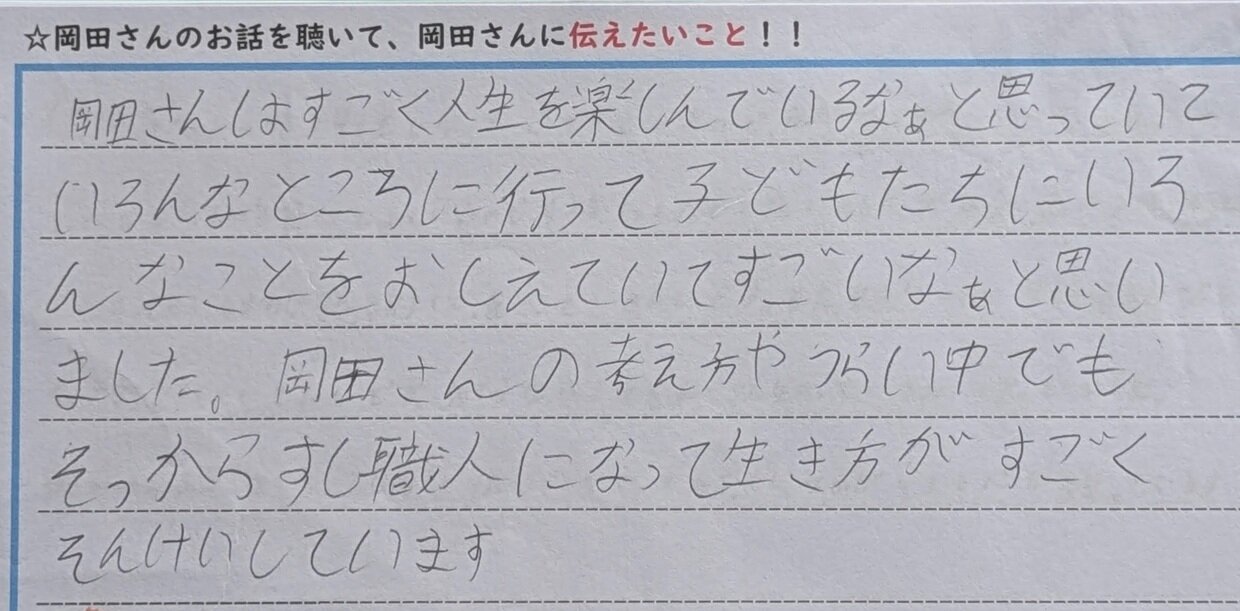 ☆岡田さんのお話を聴いて、岡田さんに伝えたいこと！！
岡田さんはすごく人生を楽しんでいるなぁと思っていて
いろんなところに行って子どもたちにいろ
んなことをおしえていてすごいなぁと思い
ました。岡田さんの考え方やつらい中でも
そっからすし職人になって生き方がすごく
そんけいしています